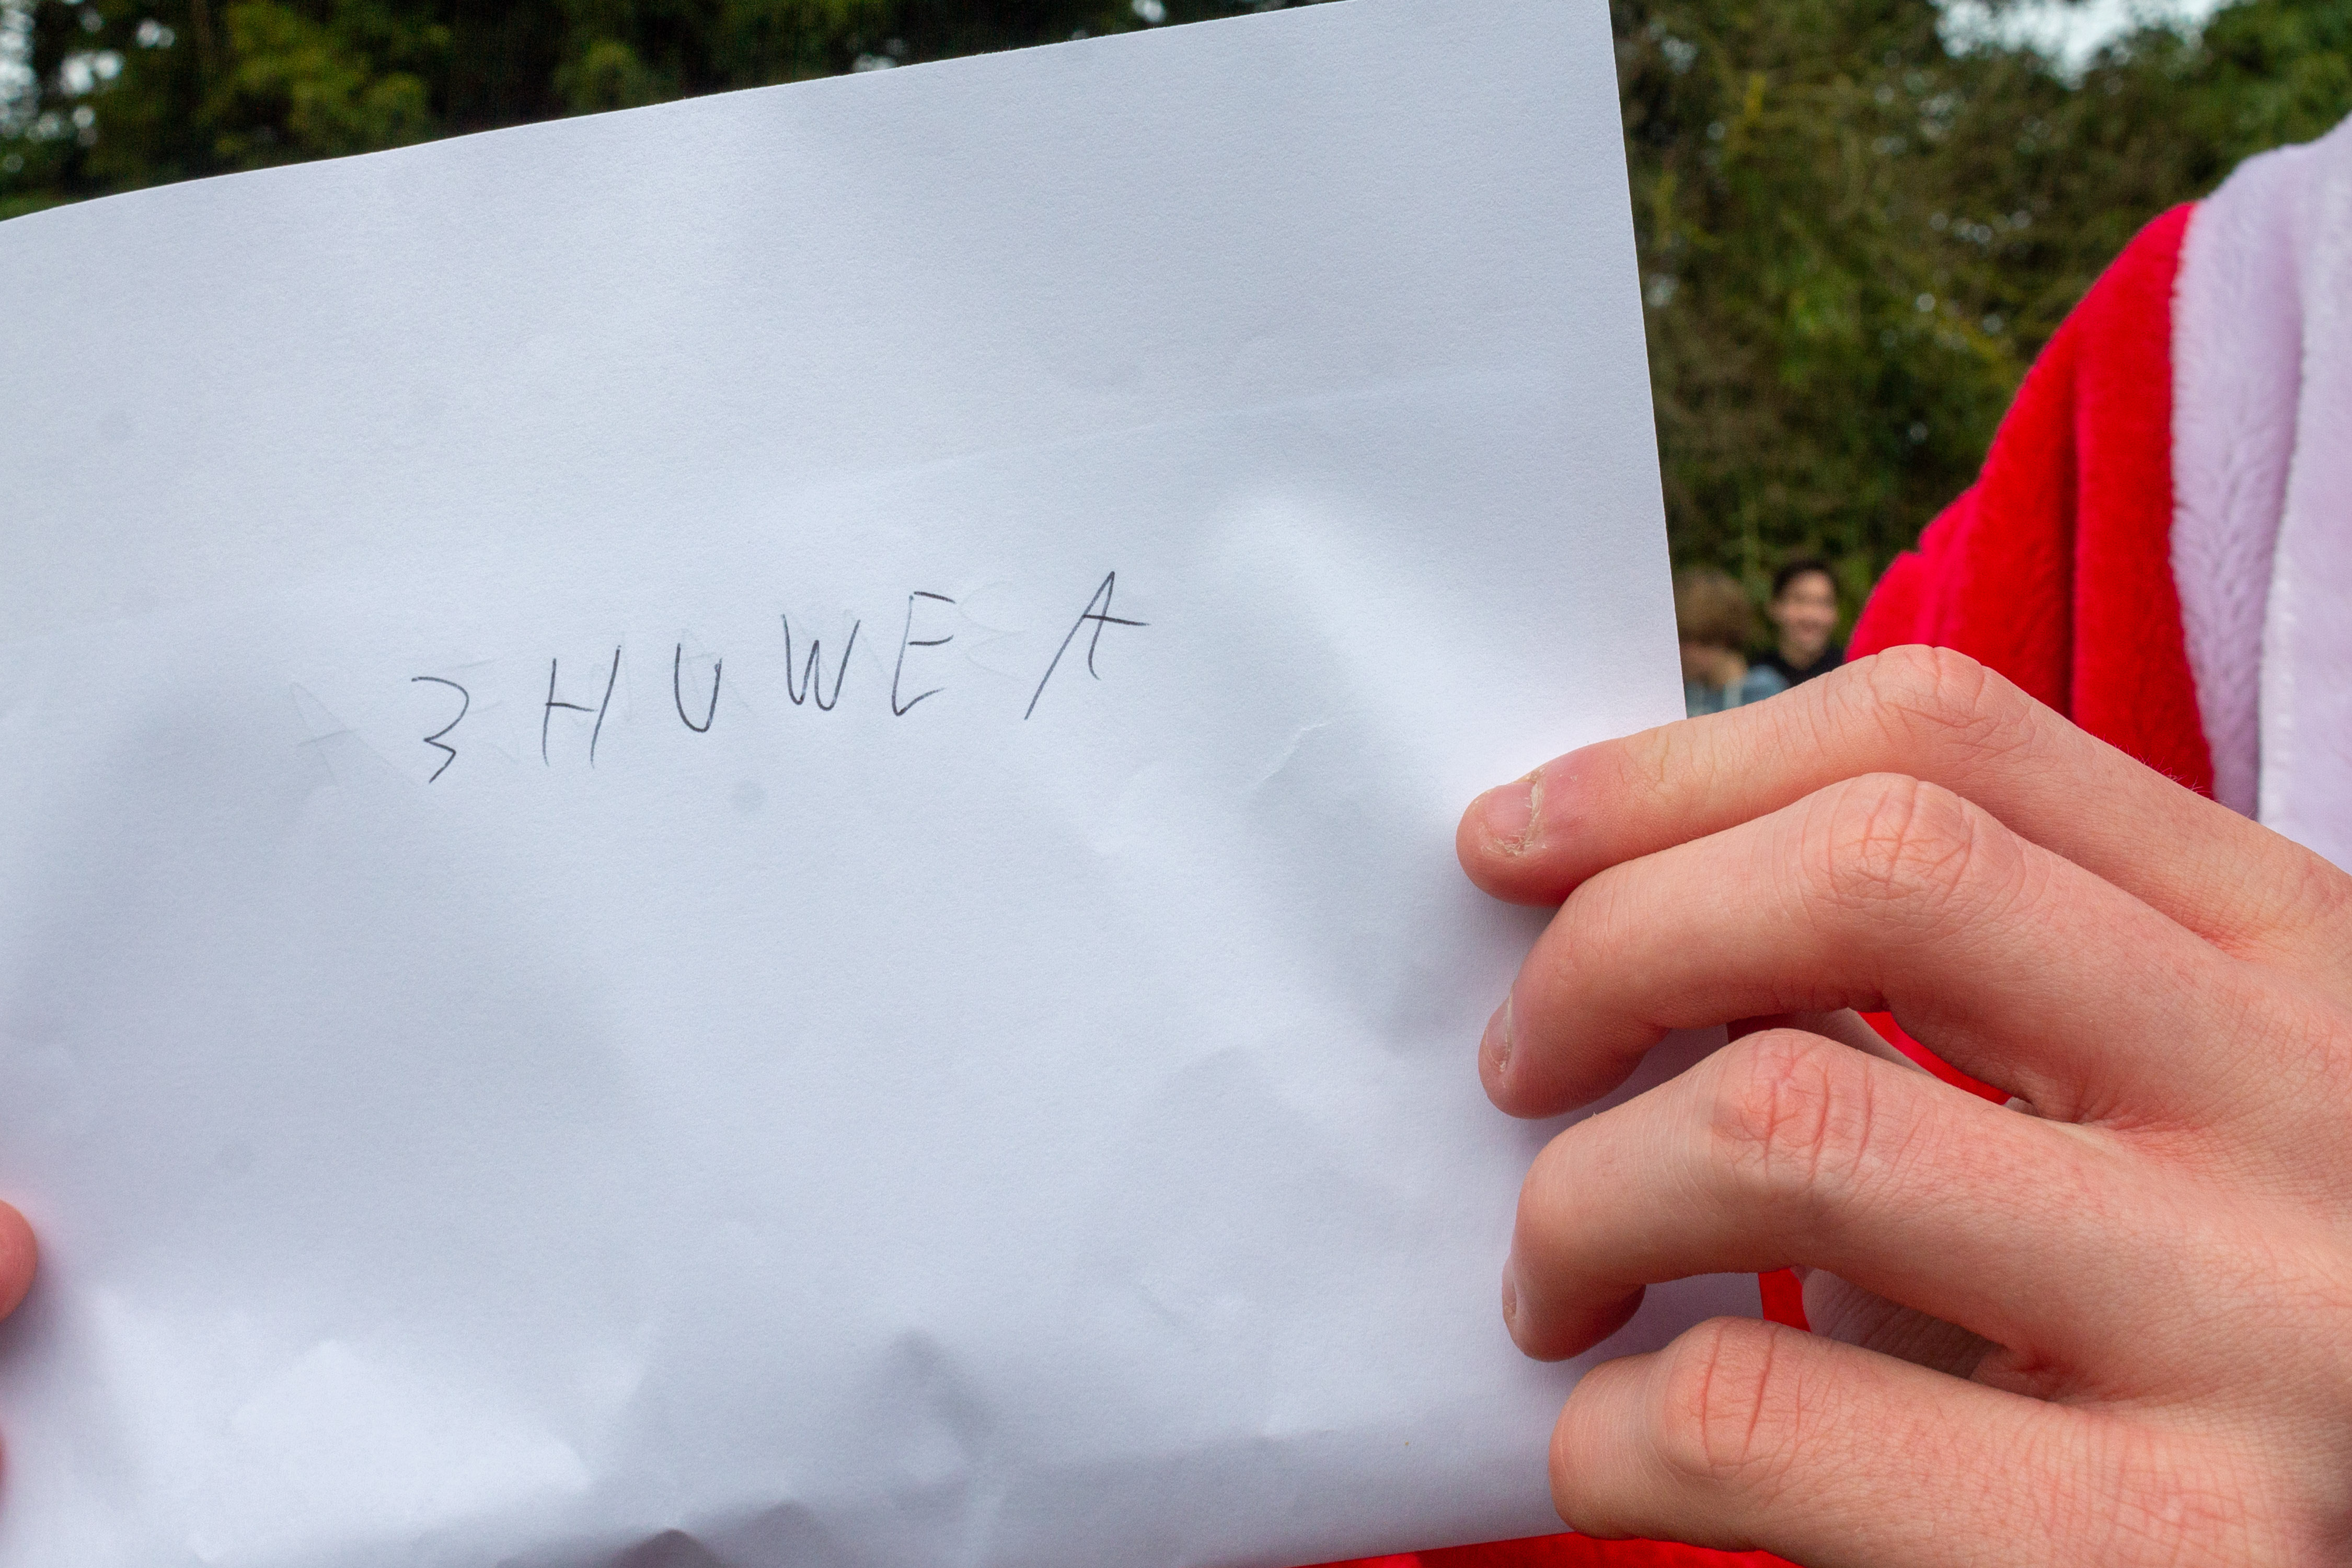 3HUWE A